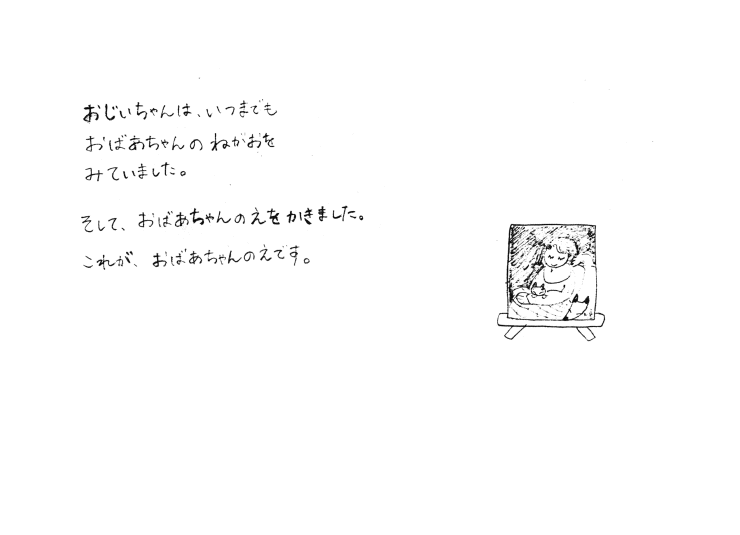 おじいちゃんは、いつまでも
おばあちゃんのねがおを
みていました。
そして、おばあちゃんのえをかきました。
これが、おばあちゃんのえです。